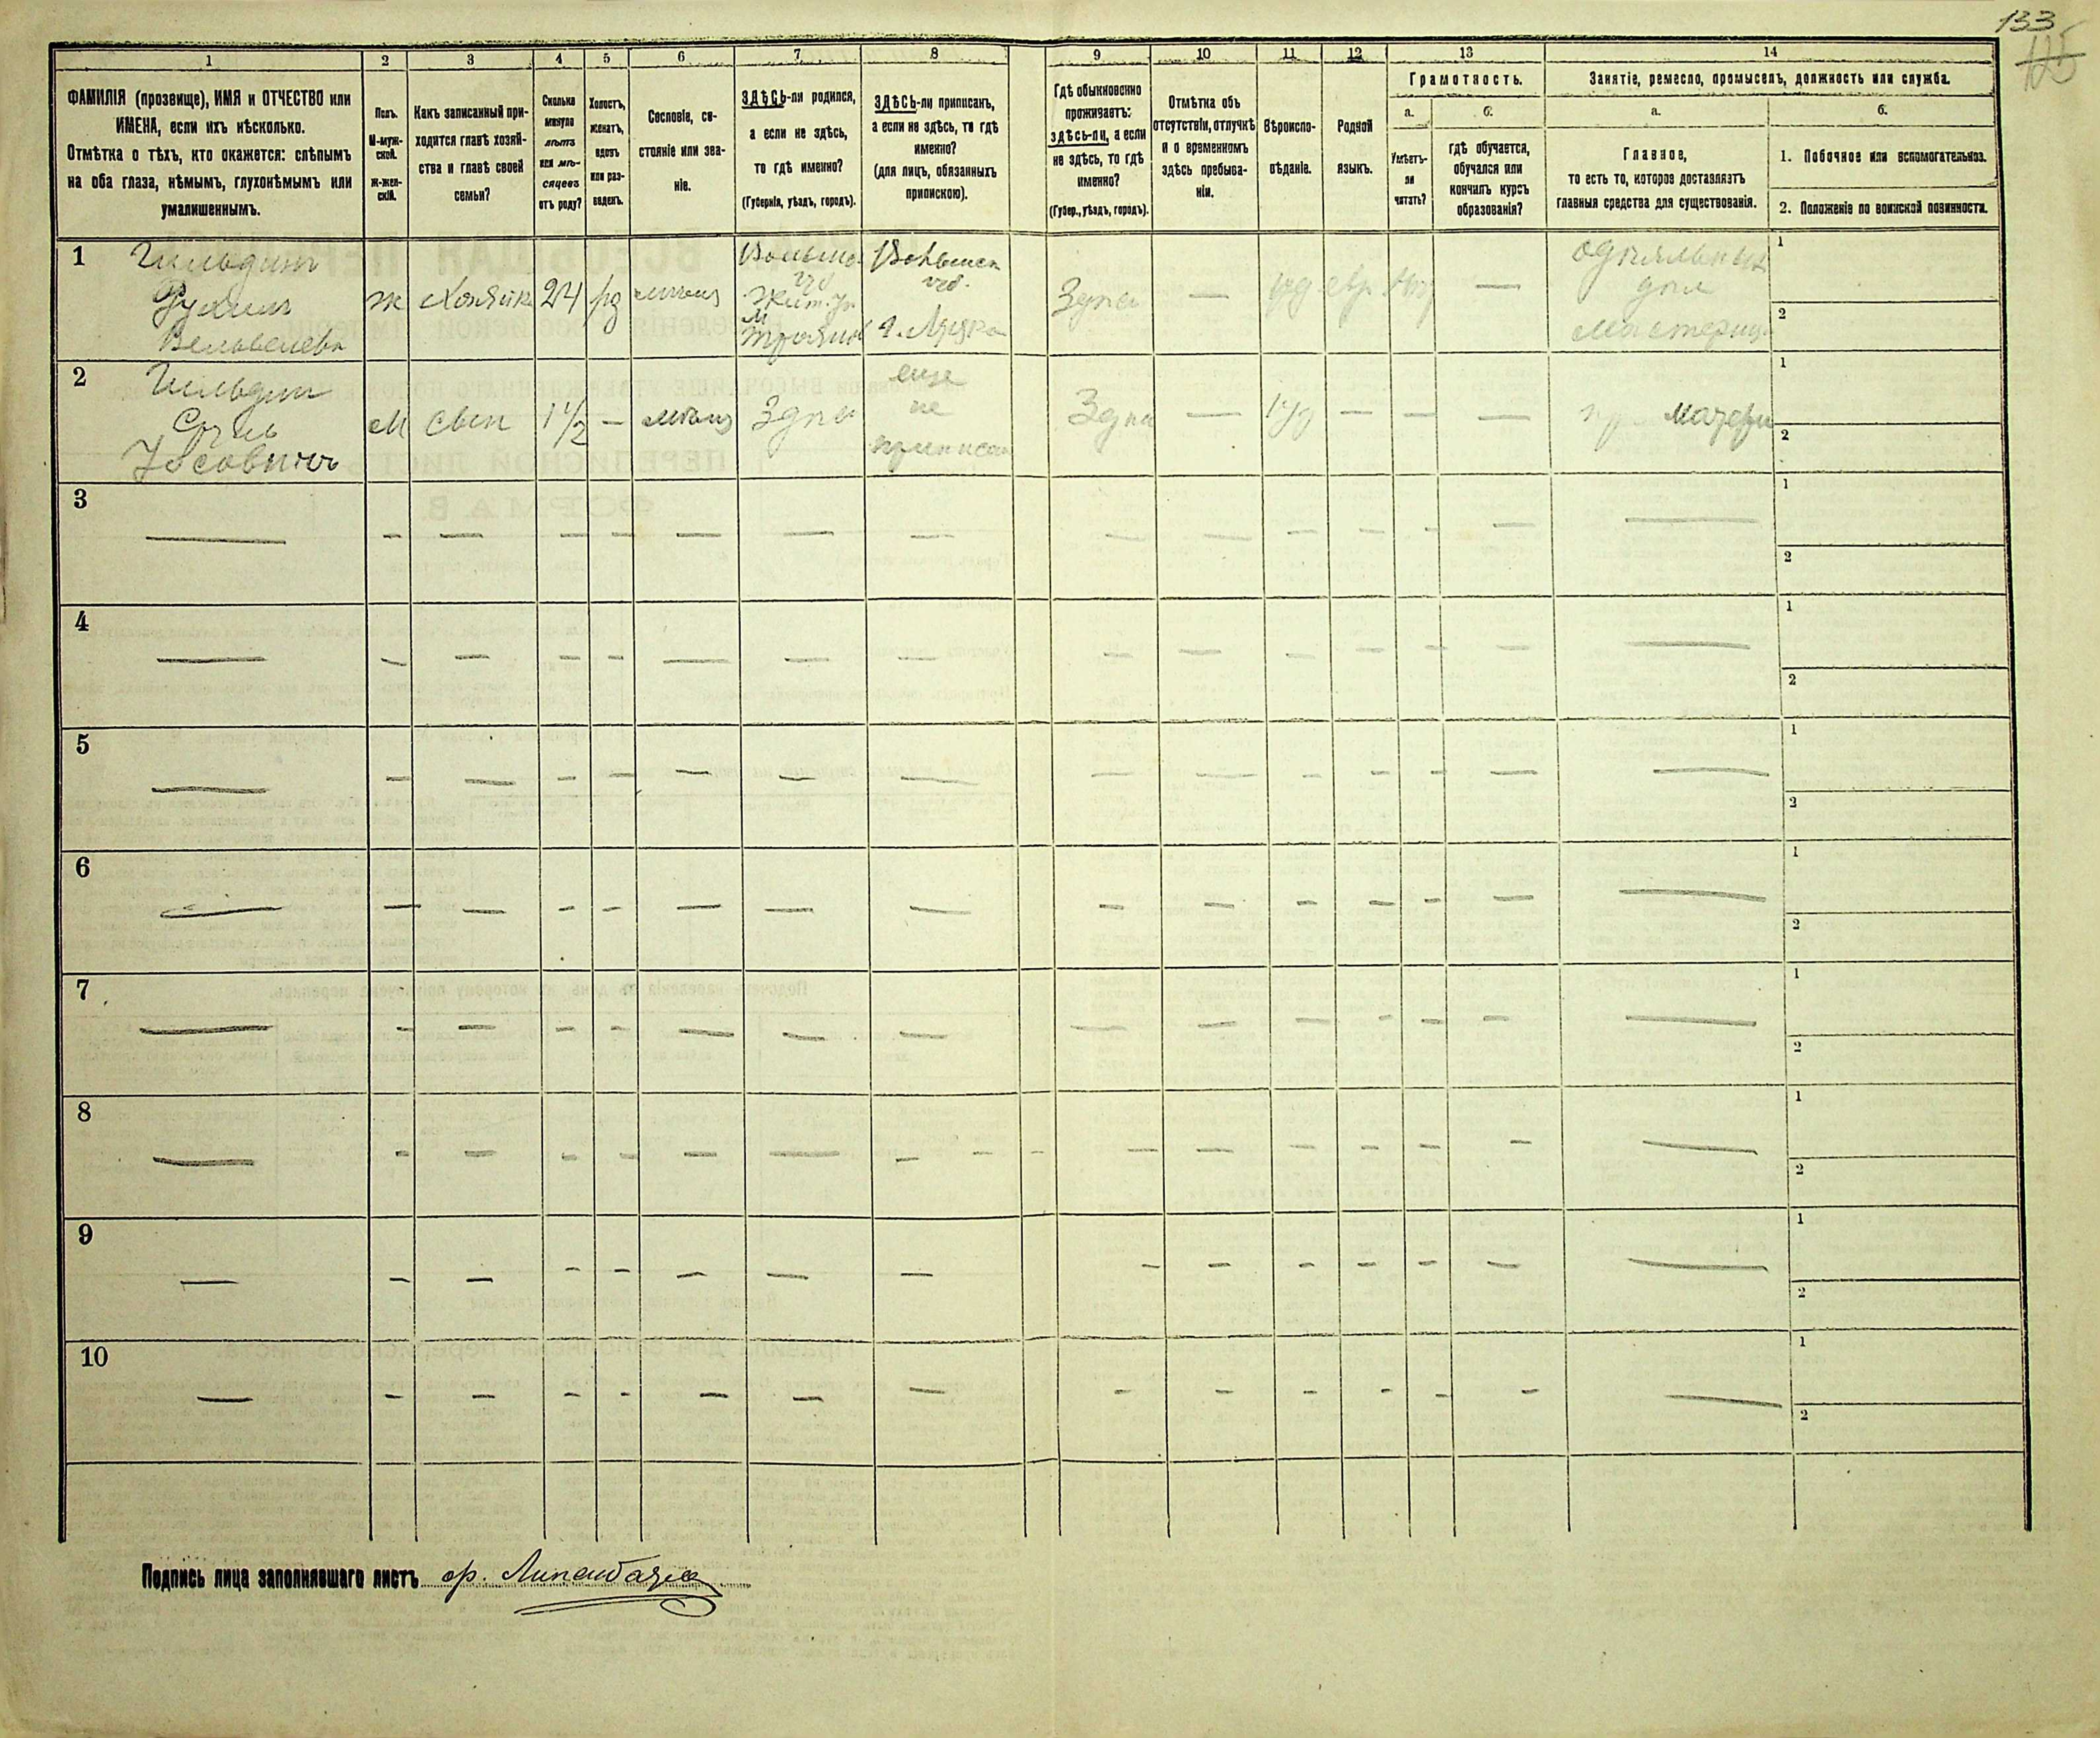 133
125
1 2 3 4 5 6 7 8 9 10 11 12 13 14
ФАМИЛІЯ (прозвище), ИМЯ и ОТЧЕСТВО или
ИМЕНА, если ихъ нѣсколько.
Отмѣтка о тѣхъ, кто окажется: слѣпымъ
на оба глаза, нѣмымъ, глухонѣмымъ или
умалишеннымъ.
Полъ.
М-муж-
ской.
Ж-жен-
скій.
Какъ записанный при-
ходится главѣ хозяй-
ства и главѣ своей
семьи?
Сколько
минуло
лѣтъ
или мѣ-
сяцевъ
отъ роду?
Холостъ,
женатъ,
вдовъ
или раз-
веденъ.
Сословіе, со-
стояніе или зва-
ніе.
ЗДѢСЬ-ли родился,
а если не здѣсь,
то гдѣ именно?
(Губернія, уѣздъ, городъ).
ЗДѢСЬ-ли приписанъ,
а если не здѣсь, то гдѣ
именно?
(для лицъ, обязанныхъ
припискою).
Гдѣ обыкновенно
проживаетъ:
здѣсь-ли, а если
не здѣсь, то гдѣ
именно?
(Губер., уѣздъ, городъ).
Отмѣтка объ
отсутствіи, отлучкѣ
и о временномъ
здѣсь пребыва-
ніи.
Вѣроиспо-
вѣданіе.
Родной
языкъ.
Грамотность.
а.
Умѣетъ-
ли
читать?
б.
гдѣ обучается,
обучался или
кончилъ курсъ
образованія?
Занятіе, ремесло, промыселъ, должность или служба.
а.
Главное,
то есть то, которое доставляетъ
главныя средства для существованія.
б.
1. Побочное или вспомогательное.
2. Положеніе по воинской повинности.
1
Гильдинъ
ж Хозяйка 24 рз
Волынск губ
Житом. у.
Волынск губ.
г. Луцка
Здѣсь — іуд евр —
мастерица
1
2
2
Гильдин
Іосовичъ
М сын 1 1/2 — мѣщ Здѣсь
еще
не
приписан
Здѣсь — іуд — — —
при матери
1
2
3 — — — — — — — — — — — — — —
1
2
4 — — — — — — — — — — — — — —
1
2
5 — — — — — — — — — — — — — —
1
2
6 — — — — — — — — — — — — — —
1
2
7 — — — — — — — — — — — — — —
1
2
8 — — — — — — — — — — — — — —
1
2
9 — — — — — — — — — — — — — —
1
2
10 — — — — — — — — — — — — — —
1
2
Подпись лица заполнявшаго листъ